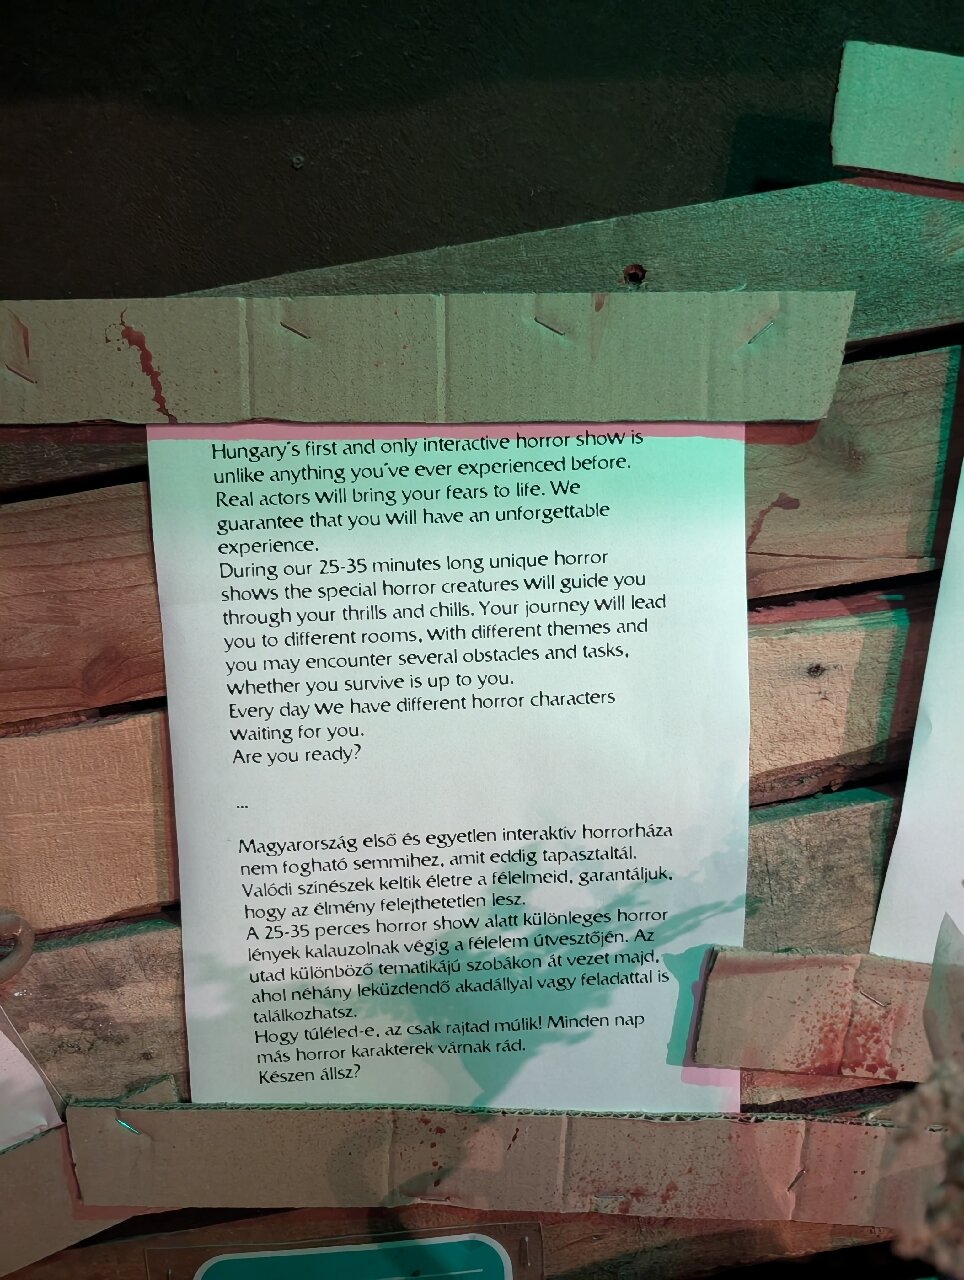 Hungary´s first and only interactive horror show is
unlike anything you´ve ever experienced before.
Real actors will bring your fears to life. We
guarantee that you will have an unforgettable
experience.
During our 25-35 minutes long unique horror
shows the special horror creatures will guide you
through your thrills and chills. Your journey will lead
you to different rooms, with different themes and
you may encounter several obstacles and tasks,
whether you survive is up to you.
Every day we have different horror characters
waiting for you.
Are you ready?
...
Magyarország első és egyetlen interaktív horrorháza
nem fogható semmihez, amit eddig tapasztaltál.
Valódi színészek keltik életre a félelmeid, garantáljuk,
hogy az élmény felejthetetlen lesz.
A 25-35 perces horror show alatt különleges horror
lények kalauzolnak végig a félelem útvesztőjén. Az
utad különböző tematikájú szobákon át vezet majd,
ahol néhány leküzdendő akadállyal vagy feladattal is
találkozhatsz.
Hogy túléled-e, az csak rajtad múlik! Minden nap
más horror karakterek várnak rád.
Készen állsz?